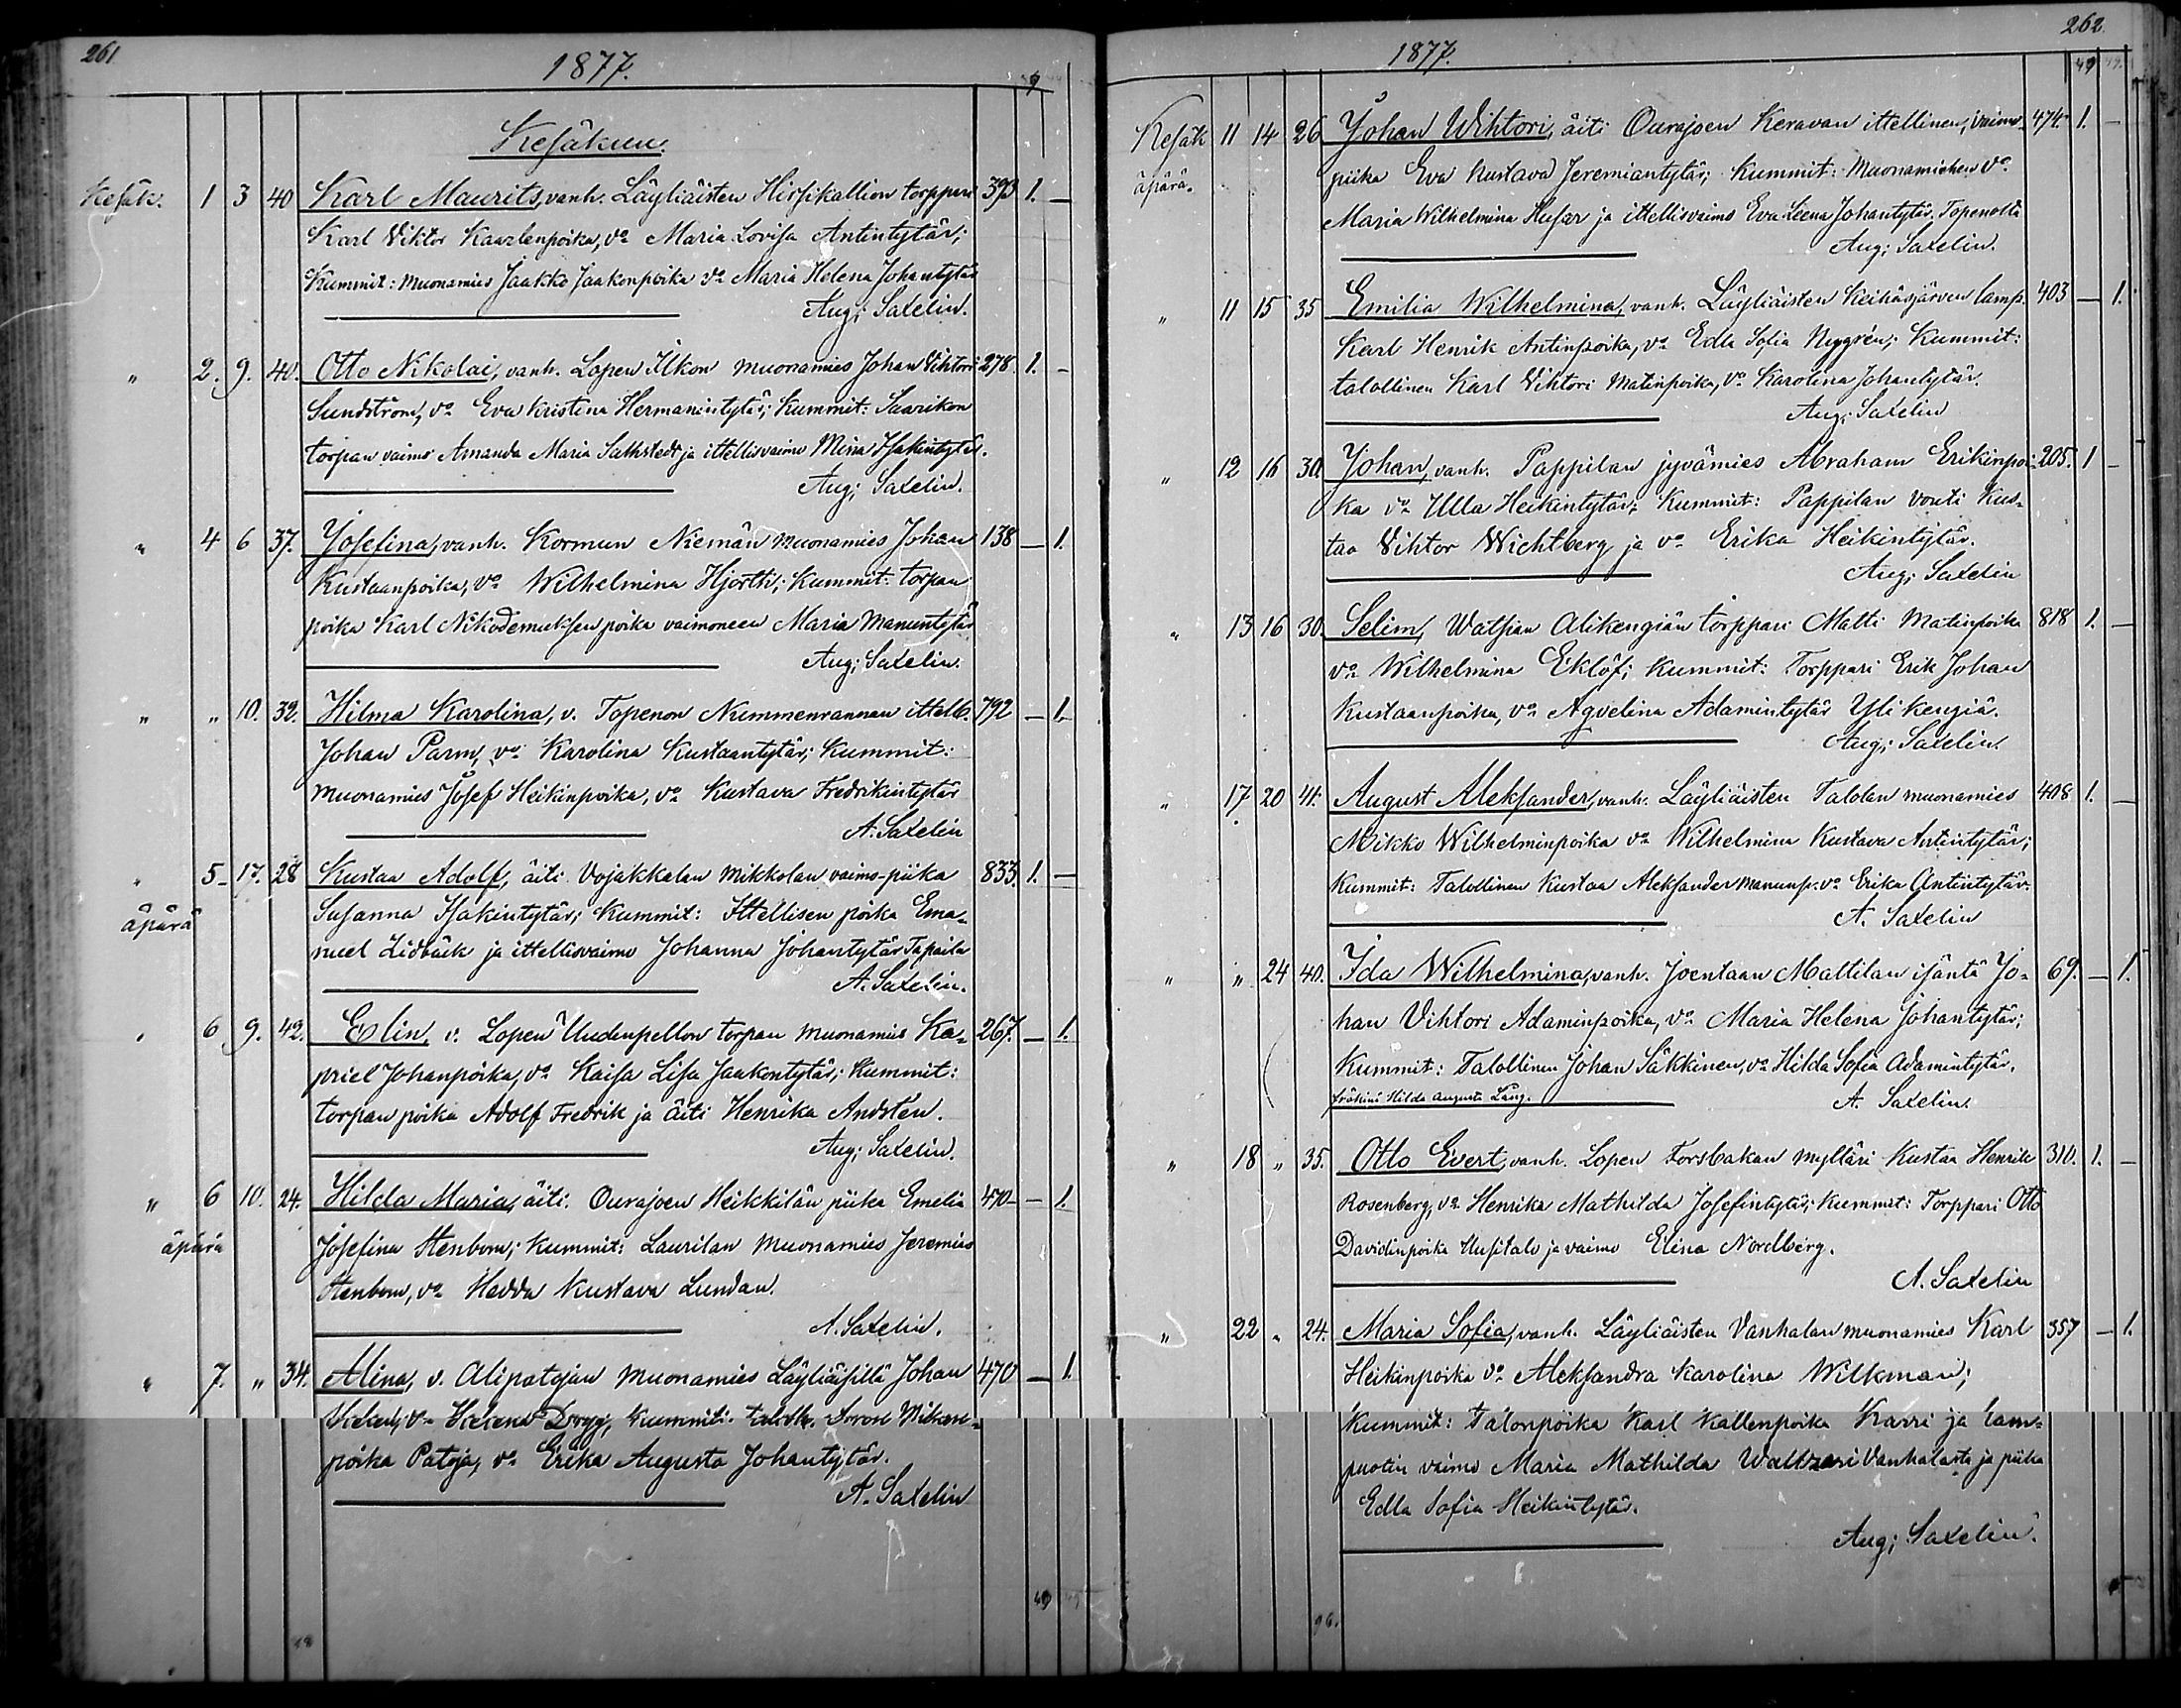 261
1877.
Kesäkuu.
Kesäk. 1 3 40 Karl Maurits, vanh. Läyliäisten Hirsikallion torppari 393 1. —
Karl Viktor Kaarlenpoika, vo Maria Lovisa Antintytär;
Kummit: muonamies Jaakko Jaakonpoika vo Maria Helena Johantytär
Aug; Saxelin.
" 2. 9. 40. Otto Nikolai, vanh. Lopen Ilkon muonamies Johan Vihtori 278. 1. -
Sundström, vo Eva Kristina Hermanintytär; Kummit: Saarikon
torpan vaimo Amanda Maria Sathstedt ja ittellisvaimo Mina Isakintytär.
Aug; Saxelin.
" 4 6 37. Josefina, vanh. Kormun Niemän muonamies Johan 138 — 1.
Kustaanpoika, vo Wilhelmina Hjorth; Kummit: torpan
poika Karl Nikodemuksenpoika vaimoneen Maria Manuntytär
Aug; Saxelin.
" " 10. 32. Hilma Karolina, v. Topenon Nummenrannan ittell. 792 — 1.
Johan Parm, vo Karolina Kustaantytär; Kummit:
muonamies Josef Heikinpoika, vo Kustava Fredrikintytär
A. Saxelin
" 5 - 17. 28 Kustaa Adolf, äiti Vojakkalan Mikkolan vaimo-piika 833. 1. —
äpärä Susanna Isakintytär; Kummit: Ittellisen poika Ema-
nuel Lidbäck ja ittellisvaimo Johanna Johantytär Tapaila
A. Saxelin.
" 6. 9. 42. Elin, v. Lopen Uudenpellon torpan muonamies Ka- 267. — 1.
priel Johanpoika, vo Kaisa Lisa Jaakontytär; Kummit:
torpan poika Adolf Fredrik ja äiti Henrika Andstén.
Aug; Saxelin.
" 6 10. 24. Hilda Maria, äiti: Ourajoen Heikkilän piika Emelia 470 — 1.
äpärä Josefina Stenbom; Kummit: Laurilan muonamies Jeremias
Stenbom, vo Hedda Kustava Lundan.
A. Saxelin.
" 7. " 34. Alina, v. Alipatojan muonamies Läyliäisillä Johan 470 — 1.
vo Helena Kummit:
poika Patoja, vo Erika Augusta Johantytär.
A. Saxelin
262
1877.
Kesäk 11 14 26 Johan Wihtori, äiti Ourajoen Keravan ittellinen, vaimo- 474. 1. —
äpärä. piika Eva Kustava Jeremiantytär; Kummit: Muonamiehen vo
Maria Wilhelmina Husar ja ittellisvaimo Eva Leena Johantytär. Topenolta
Aug; Saxelin.
" 11 15 35 Emilia Wilhelmina, vanh. Läyliäisten Keihäsjärven lamp. 403 — 1.
Karl Henrik Antinpoika, vo Edla Sofia Nygrén; Kummit:
talollinen Karl Vihtori Matinpoika, vo Karolina Johantytär.
Aug; Saxelin
" 12 16 30. Johan, vanh. Pappilan jyvämies Abraham Erikinpoi- 205. 1 -
ka vo Ulla Heikintytär; Kummit: Pappilan vouti Kus-
taa Vihtor Wichtberg ja vo Erika Heikintytär.
Aug; Saxelin
" 13 16 30. Selim, Watsian Alikengiän torppari Matti Matinpoika 818 1. —
vo Wilhelmina Eklöf; Kummit: Torppari Erik Johan
Kustaanpoika, vo Agvelina Adamintytär Yli kengiä.
Aug; Saxelin.
" 17. 20 41. August Aleksander, vanh. Läyliäisten Talolan muonamies 408 1. —
Mikko Wilhelminpoika vo Wilhelmina Kustava Antintytär;
Kummit: Talollinen Kustaa Aleksander Manunp. vo Erika Antintytär.
A. Saxelin
" " 24 40. Ida Wilhelmina, vanh. Joentaan Mattilan isäntä Jo- 69. — 1.
han Vihtori Adaminpoika, vo Maria Helena Johantytär;
Kummit: Talollinen Johan Säkkinen, vo Hilda Sofia Adamintytär.
fröökinä Hilda Augusta Lång.
A. Saxelin.
" 18 " 35. Otto Evert, vanh. Lopen Forsbakan mylläri Kustaa Henrik 310. 1. —
Rosenberg, vo Henrika Mathilda Josefintytär; Kummit: Torppari Otto
Davidinpoika Uusitalo ja vaimo Elina Nordberg.
A. Saxelin
" 22 " 24. Maria Sofia, vanh. Läyliäisten Vanhalan muonamies Karl 357 — 1.
Heikinpoika vo Aleksandra Karolina Wilkman;
Kummit: Talonpoika Karl Kallenpoika Karri ja lam-
puotin vaimo Maria Mathilda Vanhalasta ja piika
Edla Sofia Heikintytär.
Aug; Saxelin.